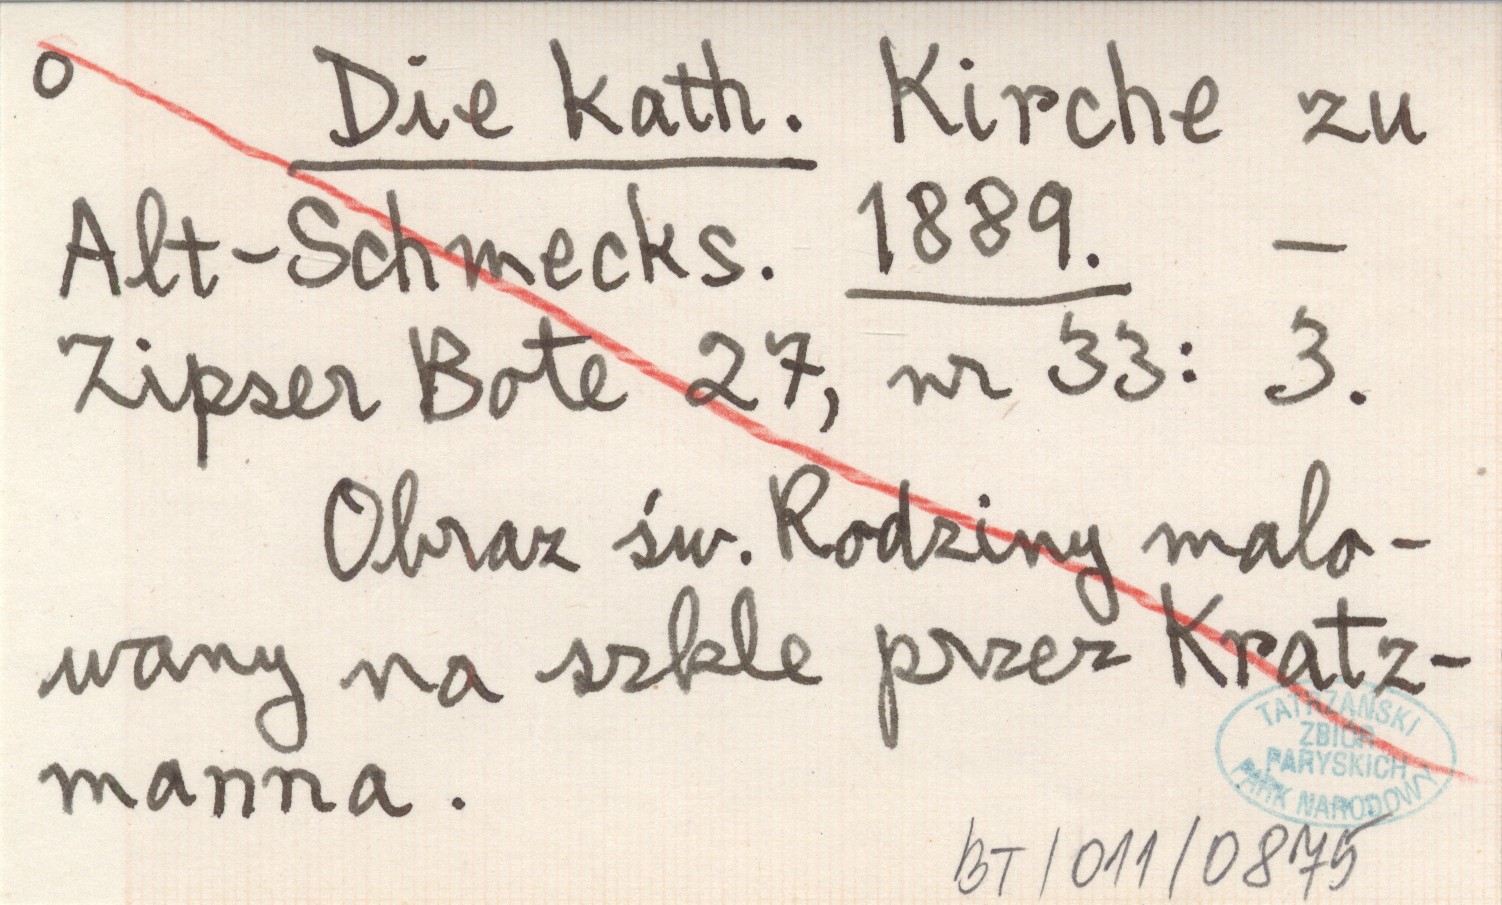 o Die kath. Kirche zu
Alt-Schmecks. 1889. —
Zipser Bote 27, nr 33: 3.
Obraz św. Rodziny malo-
wany na szkle przez Kratz-
manna.
TATRZAŃSKI
ZBIÓR
PARYSKICH
PARK NARODOWY
BT/011/0875